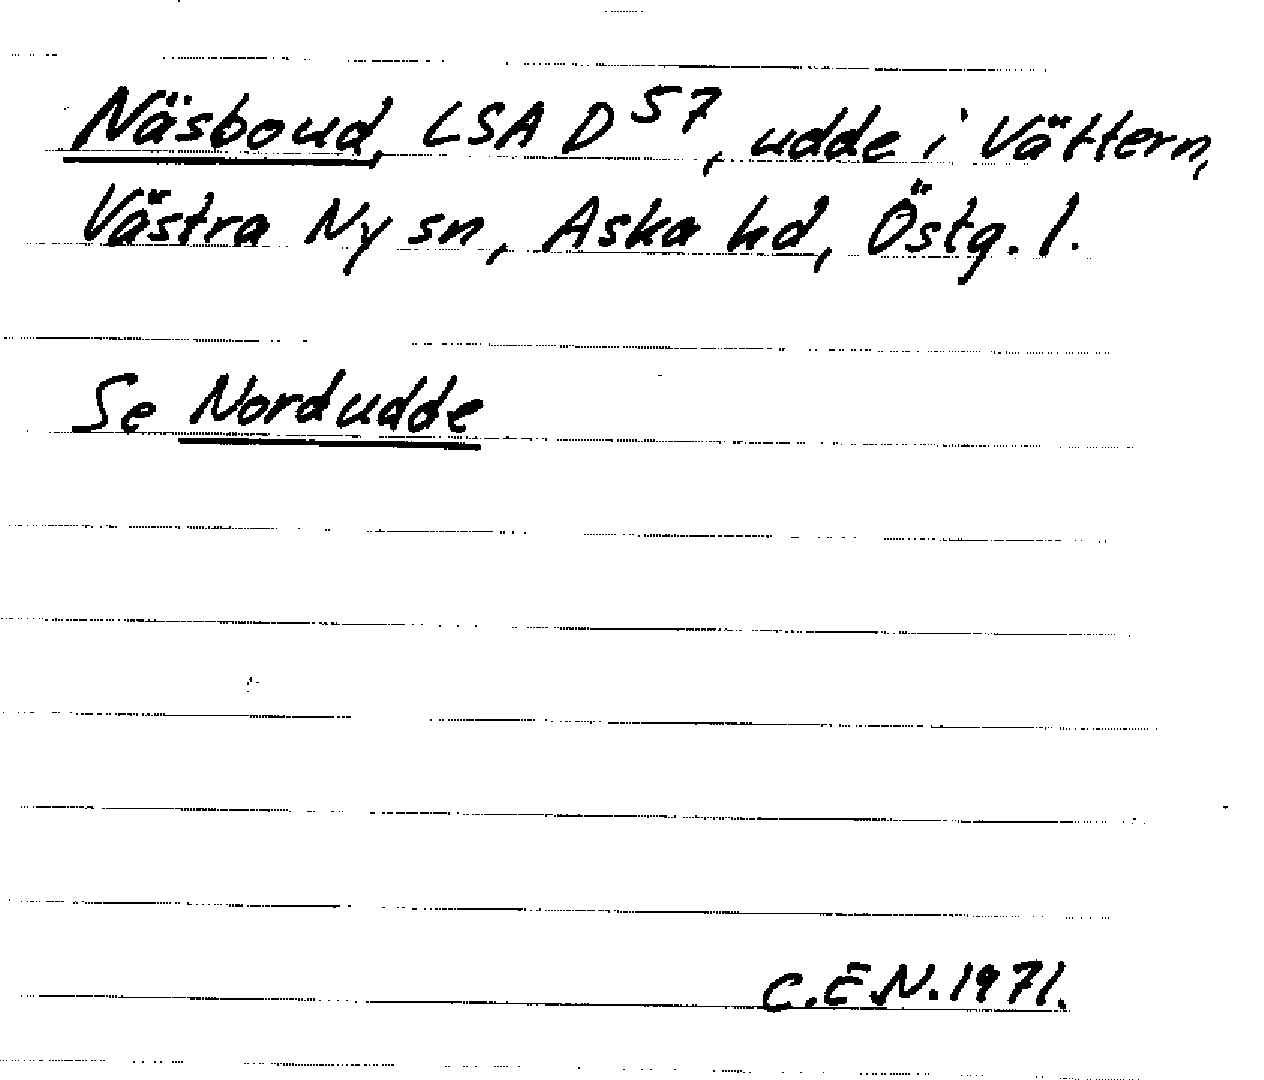 Näsboud, LSA D 57, udde i Vättern,
Västra Ny sn, Aska hd, Östg. l.
Se Nordudde
C.E.N. 1971.